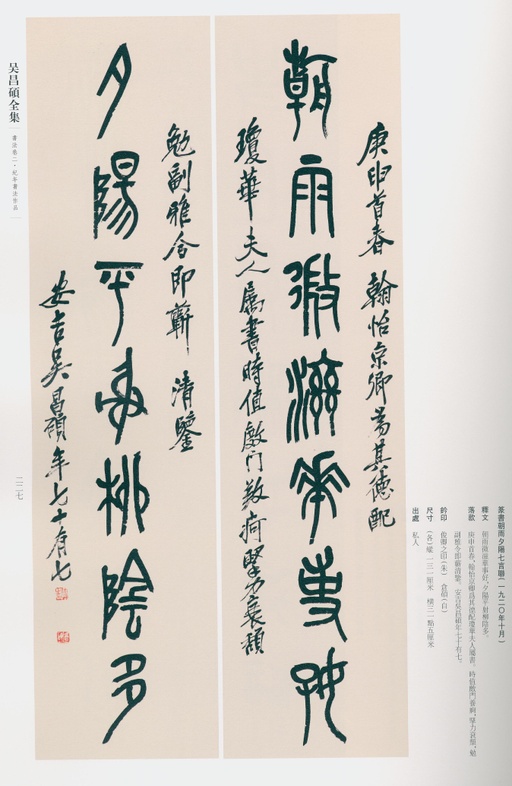 篆書朝雨夕陽七言聯（一九二〇年十月）
釋文 朝雨微滋華事好，夕陽平射柳陰多。
落款 庚申首春，翰怡京卿為其德配瓊華夫人屬書，時值門力衰頹，勉
副雅令即蘄清鑒。安吉吳昌碩年七十有七。
鈐印 俊卿之印（朱） 倉碩（白）
尺寸 （各）縱一三一厘米 橫三一點五厘米
出處 私人
庚申首春 翰怡京卿為其德配
朝雨微滋華事好
瓊華夫人屬書時值門力衰頹
勉副雅令即蘄 清鑒
夕陽平射柳陰多
安吉吳昌碩年七十有七
吴昌碩全集
書法卷二·紀年書法作品
二二七